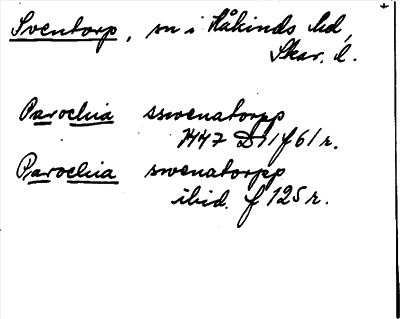 Sventorp, sn i Kåkinds hd,
Skar. l.
Parochia sswenatorpp
1447 D 11 f 61 r.
Parochia swenatorpp
ibid. f 125 r.